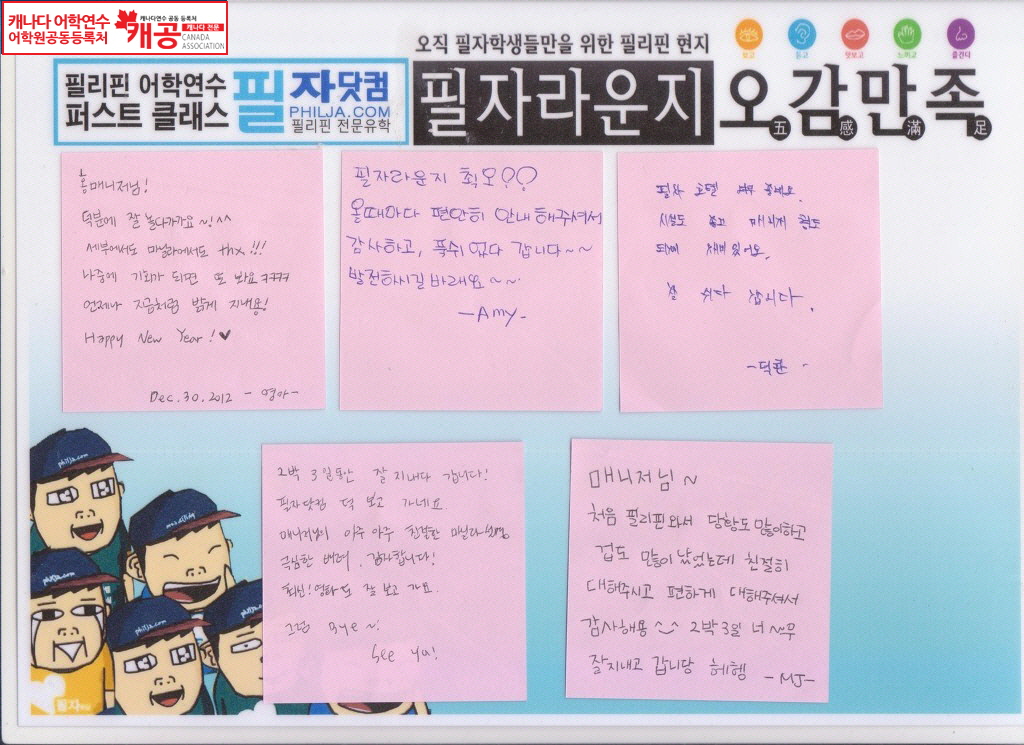 캐나다 어학연수
어학원공동등록처
캐나다연수 공동 등록처
캐공
캐나다 전문
CANADA
ASSOCIATION
오직 필자학생들만을 위한 필리핀 현지
보고
듣고
맛보고
느끼고
즐긴다
필리핀 어학연수
퍼스트 클래스
필자닷컴
PHILJA.COM
필리핀 전문유학
필자라운지
오감만족
五感滿足
홍매니저님!
덕분에 잘 놀다가가요~!^^
세부에서도 마닐라에서도 thx!!!
나중에 기회가 되면 또 봐요 ㅋㅋㅋㅋ
언제나 지금처럼 밝게 지내용!
Happy New Year!♥
Dec.30.2012 - 영아-
필자라운지 최오!♡♡
올때마다 편안히 안내해주셔서
감사하고, 푹쉬었다 갑니다~~
발전하시길 바래요~~
-Amy-
필자 호텔 너무 좋네요
시설도 좋고 매니저 형도
되게 재미있어요.
잘 쉬다 갑시다.
2박 3일동안 잘 지내다 갑니다!
필자닷컴 덕 보고 가네요
매니저님의 아주 아주 친절한 마닐라
극심한 배려, 감사합니다!
영화도 잘 보고 가요.
그럼 Bye~!
See ya!
매니저님~
처음 필리핀와서 당황도 많이하고
겁도 많이 났었는데 친절히
대해주시고 편하게 대해주셔서
감사해용 ^_^ 2박3일 너~~무
잘지내고 갑니당 헤헹 -MJ-
philja.com
philja.com
philja.com
philja.com
필자닷컴